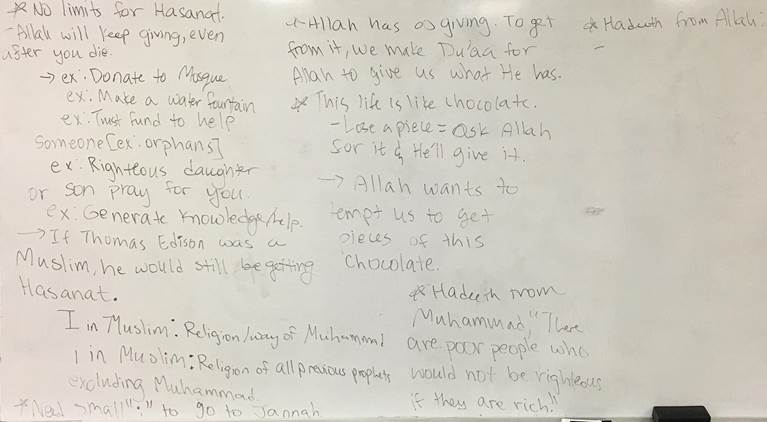 * No limits for Hasanat.
- Allah will keep giving, even
after you die.
→ ex: Donate to Mosque
ex: Make a water fountain
ex: Trust fund to help
someone [ex: orphans]
ex: Righteous daughter
or son pray for you.
ex: Generate knowledge/help.
→ If Thomas Edison was a
Muslim, he would still be getting
Hasanat.
I in Muslim: Religion/way of Muhammad
i in Muslim: Religion of all previous prophets
excluding Muhammad.
* Need small "i" to go to Jannah
- Allah has ∞ giving. To get
from it, we make Du'aa for
Allah to give us what He has.
* This life is like chocolate.
- Lose a piece = Ask Allah
for it & He'll give it.
→ Allah wants to
tempt us to get
pieces of this
chocolate.
* Hadeeth from
Muhammad, "There
are poor people who
would not be righteous
if they are rich."
* Hadeeth from Allah:
-